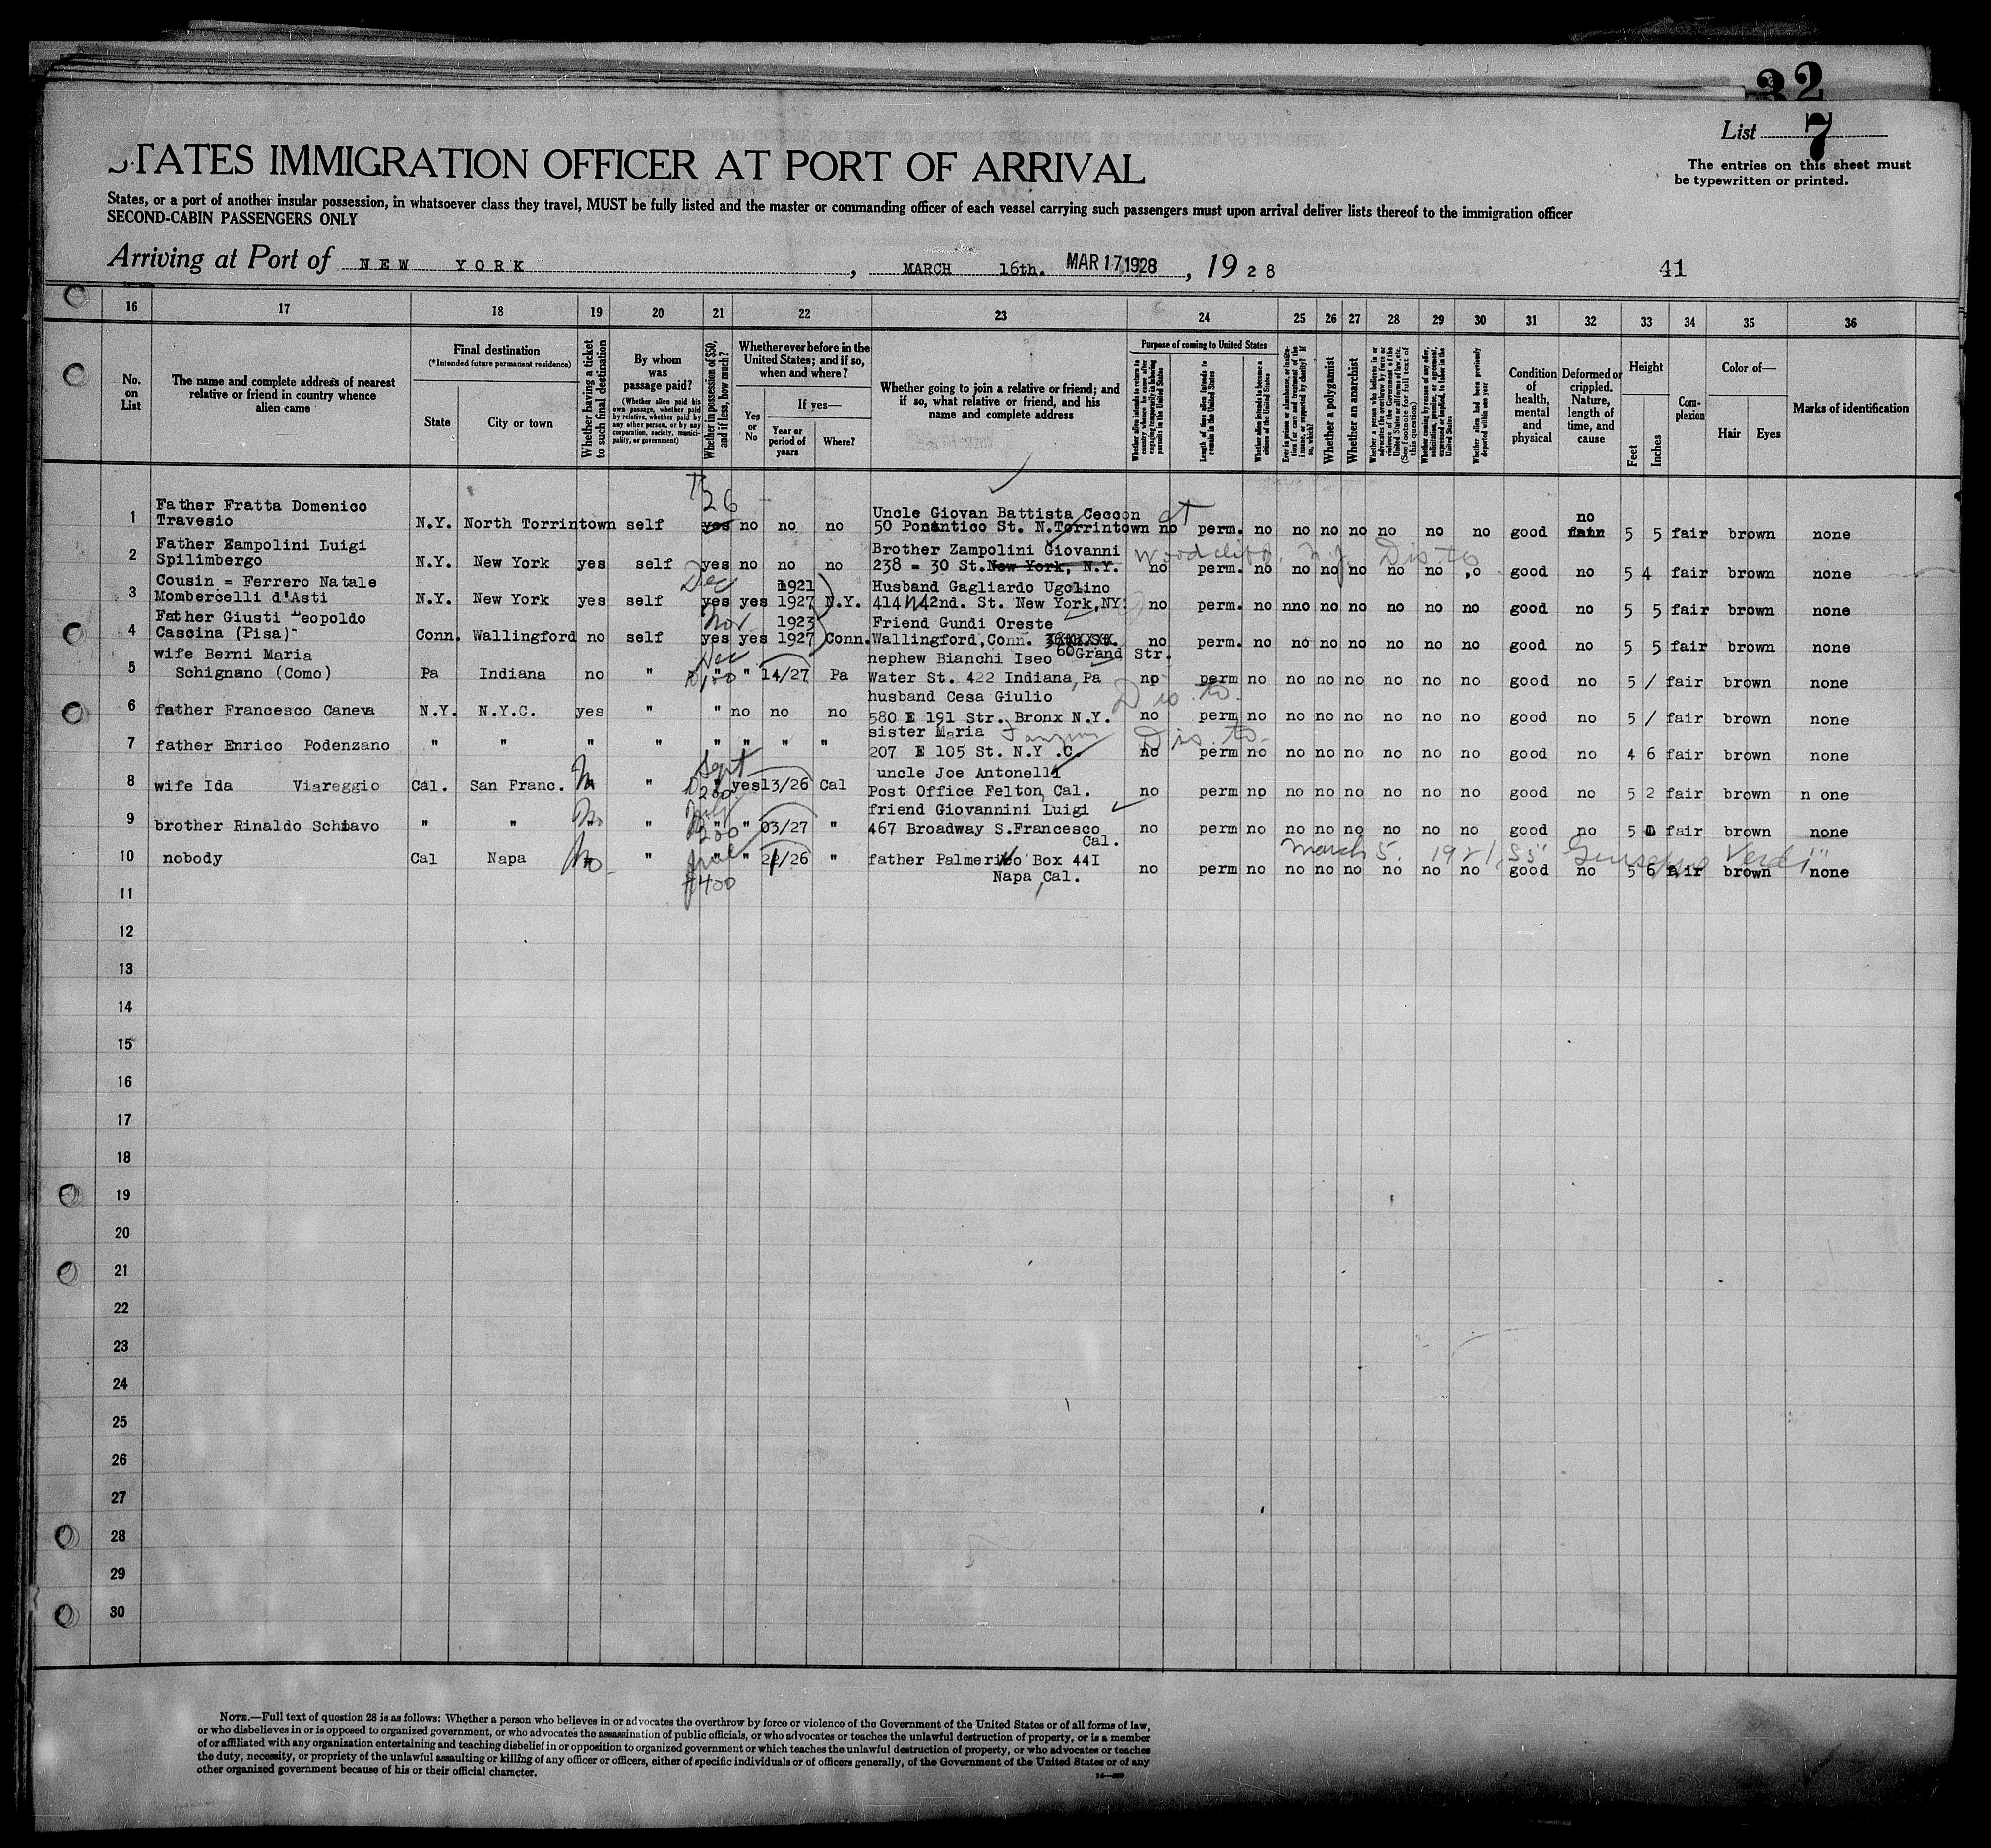 32
List 7
STATES IMMIGRATION OFFICER AT PORT OF ARRIVAL
The entries on this sheet must
be typewritten or printed.
States, or a port of another insular possession, in whatsoever class they travel, MUST be fully listed and the master or commanding officer of each vessel carrying such passengers must upon arrival deliver lists thereof to the immigration officer
SECOND-CABIN PASSENGERS ONLY
Arriving at Port of NEW YORK, MARCH 16th. MAR 17 1928, 1928
41
16 17 18 19 20 21 22 23 24 25 26 27 28 29 30 31 32 33 34 35 36
No. on List
The name and complete address of nearest relative or friend in country whence alien came
Final destination
(*Intended future permanent residence)
State
City or town
Whether having a ticket to such final destination
By whom was passage paid?
(Whether alien paid his own passage, whether paid by relative, whether paid by any other person, or by any corporation, society, municipality, or government)
Whether in possession of $50, and if less, how much?
Whether ever before in the United States; and if so, when and where?
Yes or No
If yes—
Year or period of years
Where?
Whether going to join a relative or friend; and if so, what relative or friend, and his name and complete address
Purpose of coming to United States
Whether alien intends to return to country whence he came after engaging temporarily in laboring pursuits in the United States
Length of time alien intends to remain in the United States
Whether alien intends to become a citizen of the United States
Ever in prison or almshouse, or institution for care and treatment of the insane, or supported by charity? If so, which?
Whether a polygamist
Whether an anarchist
Whether a person who believes in or advocates the overthrow by force or violence of the Government of the United States or all forms of law, etc. (See footnote for full text of this question)
Whether coming by reason of any offer, solicitation, promise, or agreement, expressed or implied, to labor in the United States
Whether alien had been previously deported within one year
Condition of health, mental and physical
Deformed or crippled. Nature, length of time, and cause
Height
Feet
Inches
Complexion
Color of—
Hair
Eyes
Marks of identification
26
1 Father Fratta Domenico
Travesio N.Y. North Torrintown self yes no no no
Uncle Giovan Battista Ceccon
50 Ponantico St. N.Torrintown no perm. no no no no no no no good no 5 5 fair brown none
2 Father Zampolini Luigi
Spilimbergo N.Y. New York yes self yes no no no
Brother Zampolini Giovanni Woodcliff. N.J. Dis. to
238 = 30 St. New York, N.Y. no perm. no no no no no no good no 5 4 fair brown none
3 Cousin = Ferrero Natale Dec 1921
Mombercelli d'Asti N.Y. New York yes self yes yes 1927 N.Y.
Husband Gagliardo Ugolino
414 W 42nd. St. New York, NY. no perm. no nno no no no no no good no 5 5 fair brown none
4 Father Giusti Leopoldo Nov 1923
Cascina (Pisa) Conn. Wallingford no self yes yes 1927 Conn.
Friend Gundi Oreste
Wallingford, Conn. 60 Grand Str. no perm. no no no no no no no good no 5 5 fair brown none
5 wife Berni Maria Dec
Schignano (Como) Pa Indiana no " " " 14/27 Pa
nephew Bianchi Iseo
Water St. 422 Indiana, Pa no perm no no no no no no no good no 5 / fair brown none
6 father Francesco Caneva N.Y. N.Y.C. yes " " no no no
husband Cesa Giulio Dis. to
580 E 191 Str. Bronx N.Y. no perm no no no no no no no good no 5 / fair brown none
7 father Enrico Podenzano " " " " " " " "
sister Maria Dis. to
207 E 105 St. N.Y .C. no perm no no no no no no no good no 4 6 fair brown none
8 wife Ida Viareggio Cal. San Franc. " Sept 200 yes 13/26 Cal
uncle Joe Antonelli
Post Office Felton, Cal. no perm no no no no no no no good no 5 2 fair brown n one
9 brother Rinaldo Schiavo " " " July 200 " 03/27 "
friend Giovannini Luigi
467 Broadway S.Francesco Cal. no perm no no no no no no no good no 5 fair brown none
10 nobody Cal Napa no " " " /26 " $400
father Palmerino Box 44I
Napa, Cal. no perm no no no no no no no good no 5 6 fair brown none
March 5. 1921, SS" Giuseppe Verdi"
11
12
13
14
15
16
17
18
19
20
21
22
23
24
25
26
27
28
29
30
NOTE.—Full text of question 28 is as follows: Whether a person who believes in or advocates the overthrow by force or violence of the Government of the United States or of all forms of law,
or who disbelieves in or is opposed to organized government, or who advocates the assassination of public officials, or who advocates or teaches the unlawful destruction of property, or is a member
of or affiliated with any organization entertaining and teaching disbelief in or opposition to organized government or which teaches the unlawful destruction of property, or who advocates or teaches
the duty, necessity, or propriety of the unlawful assaulting or killing of any officer or officers, either of specific individuals or of officers generally, of the Government of the United States or of any
other organized government because of his or their official character.